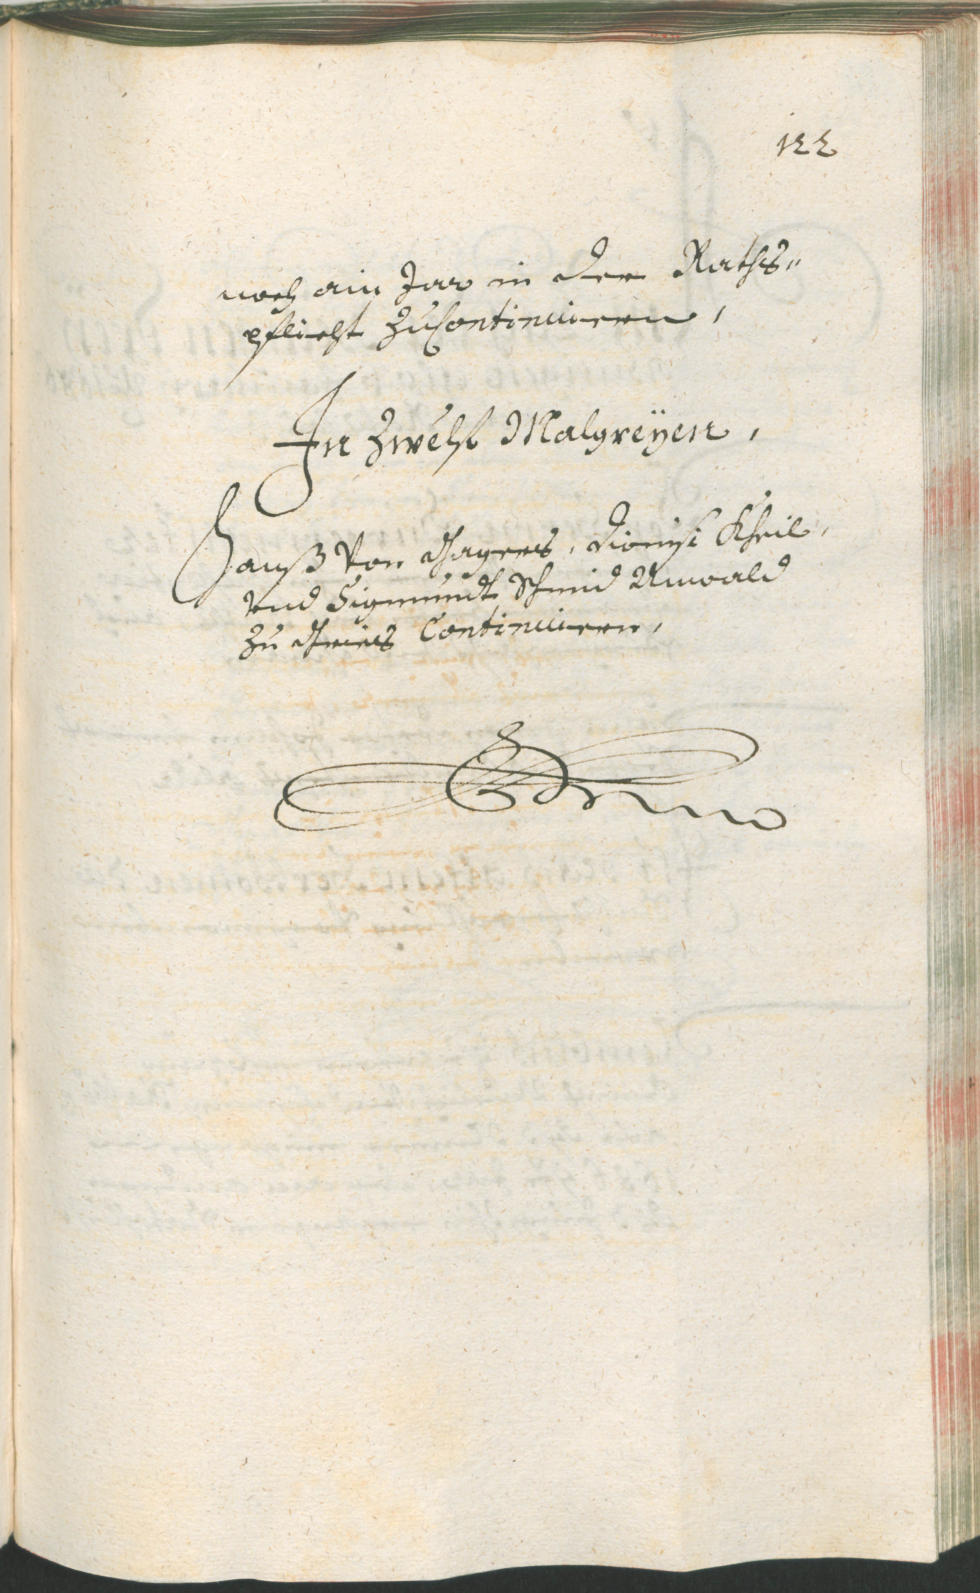 122
noch ain Jar in der Raths„
pflicht zu Continuiren,
In Zwelf Malgreÿen,
Hanß Von Thagers, Dionisi Kheil,
Vnd Sigmundt Schmid Anwald
zu Gries Continuiren,